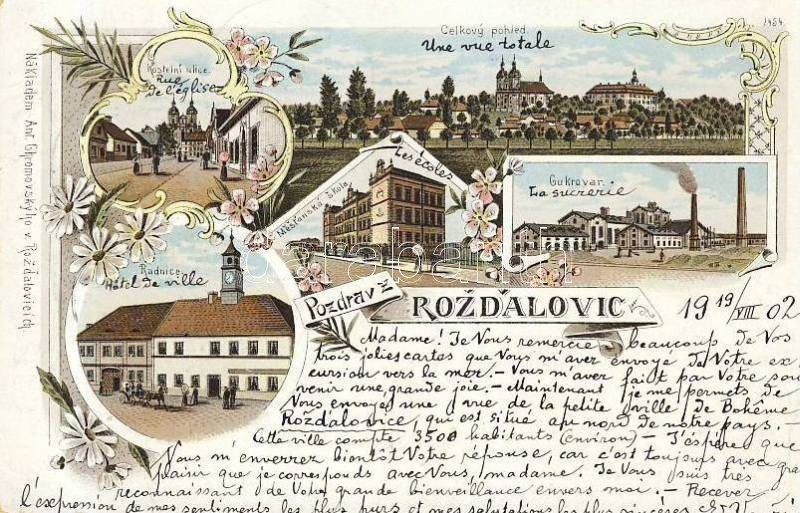 1484
Celkový pohled.
Une vue totale
Kostelní ulice.
Rue
de l'église
Nákladem Ant. Chromovského v Rožďalovicích
Měšťanská škola
Les écoles
Cukrovar
La sucrerie
Radnice.
Hôtel de ville
Pozdrav z
ROŽĎALOVIC
19 19/VIII 02
Madame! Je Vous remercie beaucoup de Vos
trois jolies cartes que Vous m'avez envoyé de Votre ex-
cursion vers la mer. - Vous m'avez fait par Votre sou-
venir une grande joie. - Maintenant je me permets de
Vous envoyer une vue de la petite ville de Bohême
Rožďalovice, qui est situé au nord de notre pays. -
Cette ville compte 3500 habitants (environ) - J'éspère que
Vous m'enverrez bientôt Votre réponse, car c'est toujours avec grand
plaisir que je corresponds avec Vous, madame. Je Vous suis très
reconnaissant de Votre grande bienveillance envers moi. - Recever
l'expression de mes sentiments les plus purs et mes salutations les plus sincères